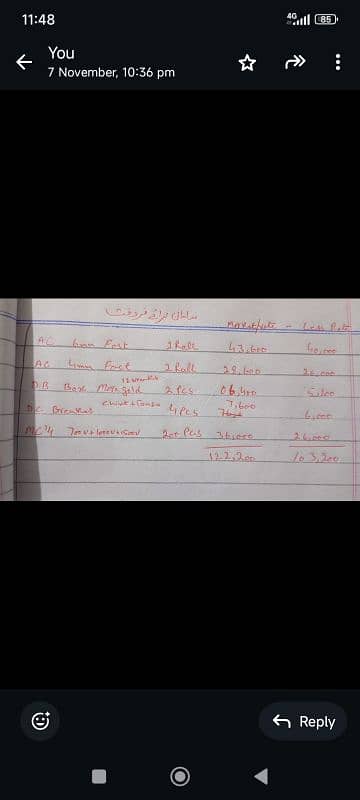 11:48 4G 85
You
7 November, 10:36 pm
سامان برائے فروخت
Market rate - Less Rate
AC 6mm Fast 1 Roll 43,600 40,000
AC 4mm Fast 1 Roll 28,600 26,000
12 way
D.B Box 2 Pcs 06,400 5,200
D.C Breakers 4 Pcs 7,600 6,000
MC4 200 Pcs 36,000 26,000
122,200 103,200
Reply